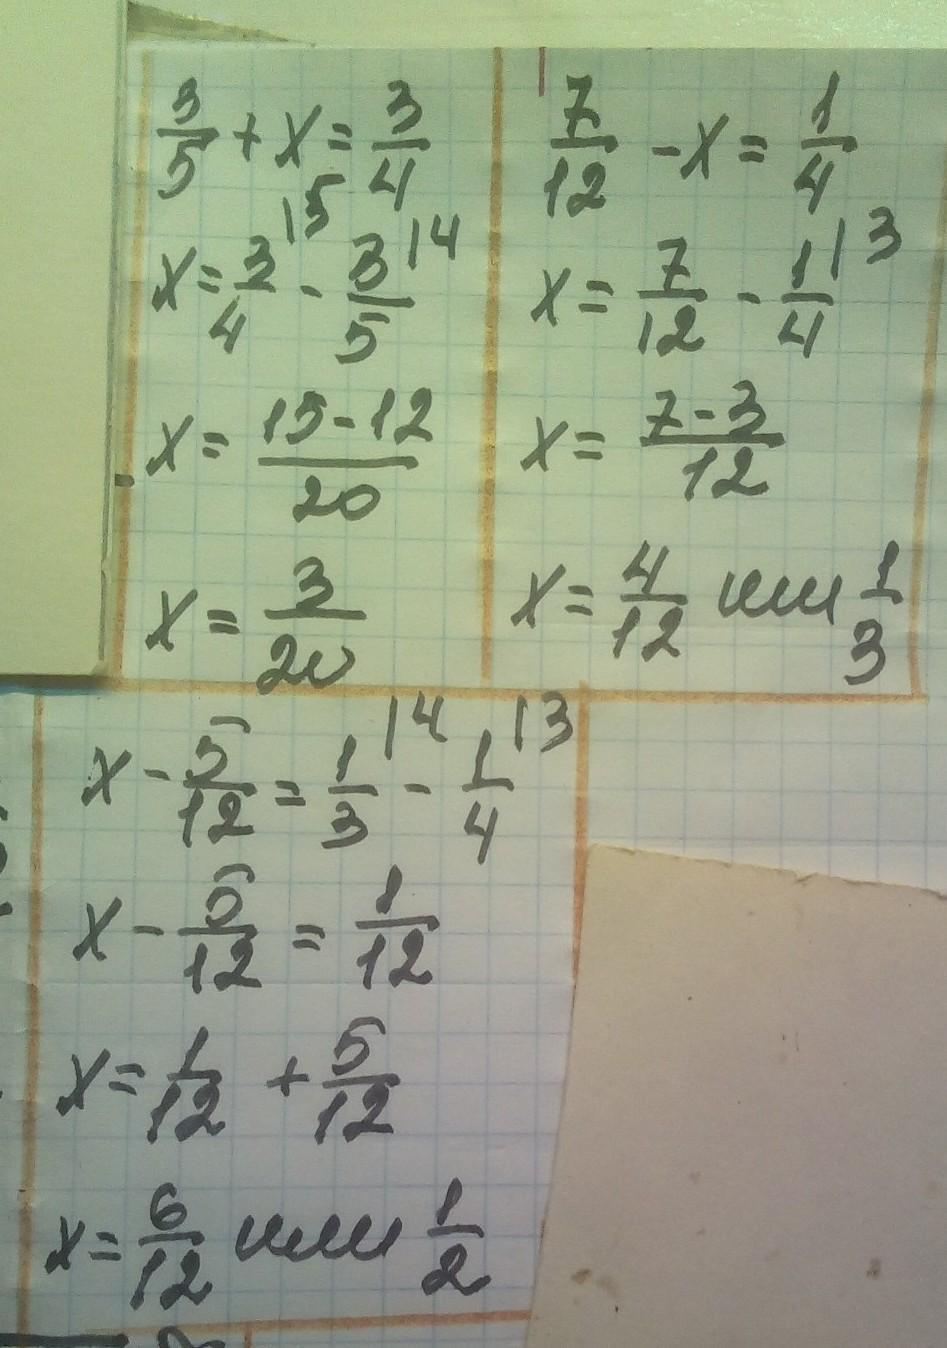 3/5 + x = 3/4
x = 3/4 |5 - 3/5 |4
x = 15-12/20
x = 3/20
7/12 - x = 1/4
x = 7/12 - 1/4 |3
x = 7-3/12
x = 4/12 или 1/3
x - 5/12 = 1/3 |4 - 1/4 |3
x - 5/12 = 1/12
x = 1/12 + 5/12
x = 6/12 или 1/2